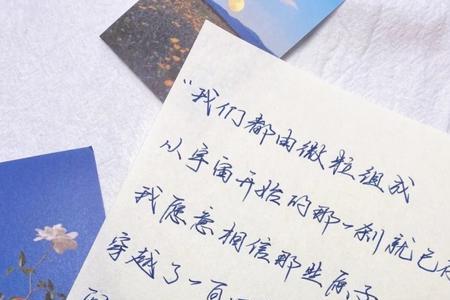 “我们都由微粒组成
从宇宙开始的那一刹就已
我愿意相信那些原子
穿越了一百